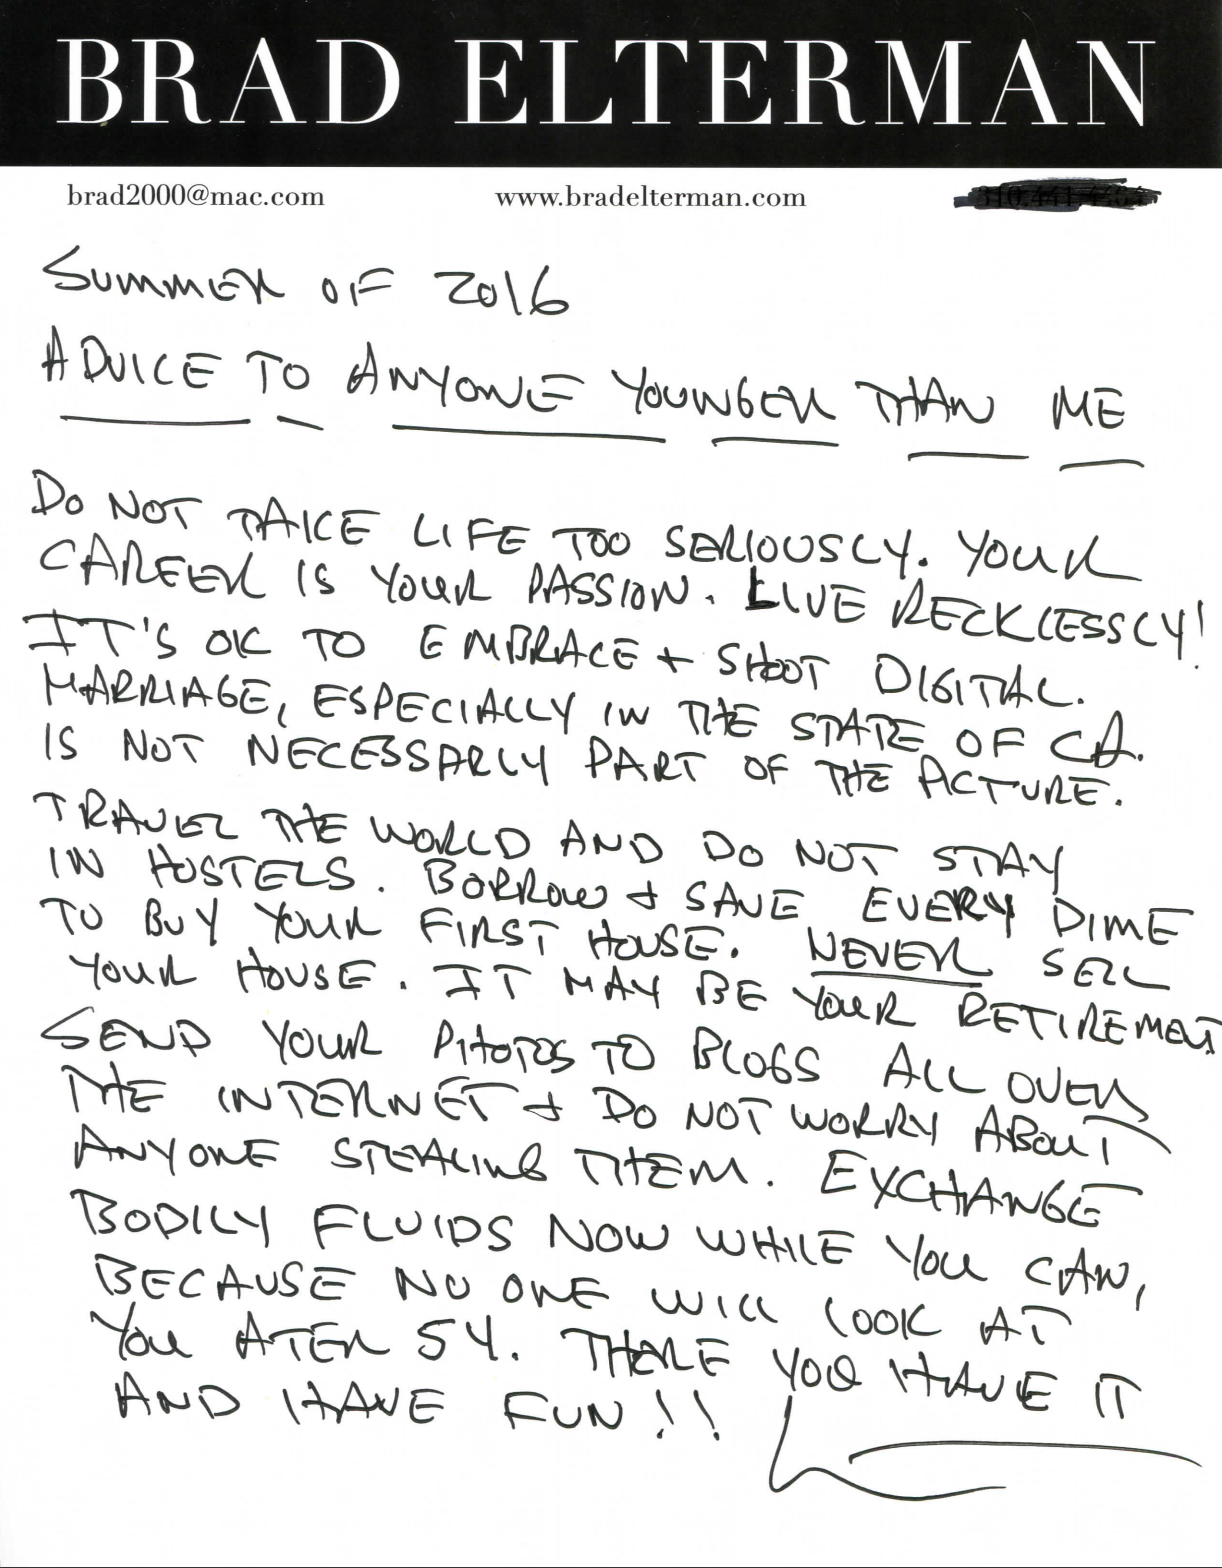 BRAD ELTERMAN
brad2000@mac.com www.bradelterman.com
SUMMER OF 2016
ADVICE TO ANYONE YOUNGER THAN ME
DO NOT TAKE LIFE TOO SERIOUSLY. YOUR
CAREER IS YOUR PASSION. LIVE RECKLESSLY!
IT'S OK TO EMBRACE + SHOOT DIGITAL.
MARRIAGE, ESPECIALLY IN THE STATE OF CA.
IS NOT NECESSARLY PART OF THE PICTURE.
TRAVEL THE WORLD AND DO NOT STAY
IN HOSTELS. BORROW + SAVE EVERY DIME
TO BUY YOUR FIRST HOUSE. NEVER SELL
YOUR HOUSE. IT MAY BE YOUR RETIREMENT
SEND YOUR PHOTOS TO BLOGS ALL OVER
THE INTERNET + DO NOT WORRY ABOUT
ANYONE STEALING THEM. EXCHANGE
BODILY FLUIDS NOW WHILE YOU CAN,
BECAUSE NO ONE WILL LOOK AT
YOU ATER 54. THERE YOU HAVE IT
AND HAVE FUN!!